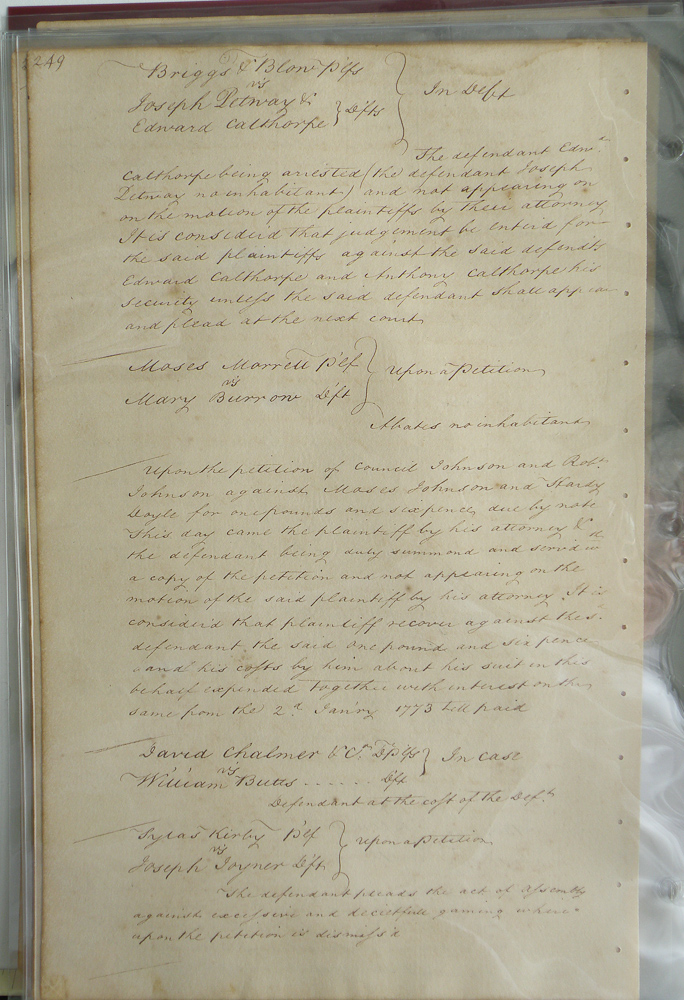 249
Briggs & Blow Plfs
vs
Joseph Petway &
Edward Calthorpe } Dfts
In Debt
The defendant Edwd.
Calthorpe being arrested (the defendant Joseph
Petway no inhabitant) and not appearing on
on the motion of the plaintiffs by their attorney
It is considerd that judgement be enterd for
the said plaintiffs against the said defendts
Edward Calthorpe and Anthony Calthorpe his
security unless the said defendant shall appear
and plead at the next court
Moses Morrell Plf
vs
Mary Burrow Dft
Upon a Petition
Abates no inhabitant
Upon the petition of Council Johnson and Robt.
Johnson against Moses Johnson and Hardy
Doyle for one pounds and sixpence due by note
This day came the plaintiff by his attorney &
the defendant being duly summond and servd w
a copy of the petition and not appearing on the
motion of the said plaintiff by his attorney It is
considerd that plaintiff recover against the sd.
defendant the said one pound and six pence
and his costs by him about his suit in this
behalf expended together with interest on the
same from the 2d Janry 1773 till paid
David Chalmer & Co. Plfs
vs
William Butts ...... Dft
In Case
Defendant at the cost of the Deft.
Sylas Kirby Plf
vs
Joseph Joyner Dft
Upon a Petition
The defendant pleads the act of assembly
against excessive and decietfull gaming where
upon the petition is dismiss'd